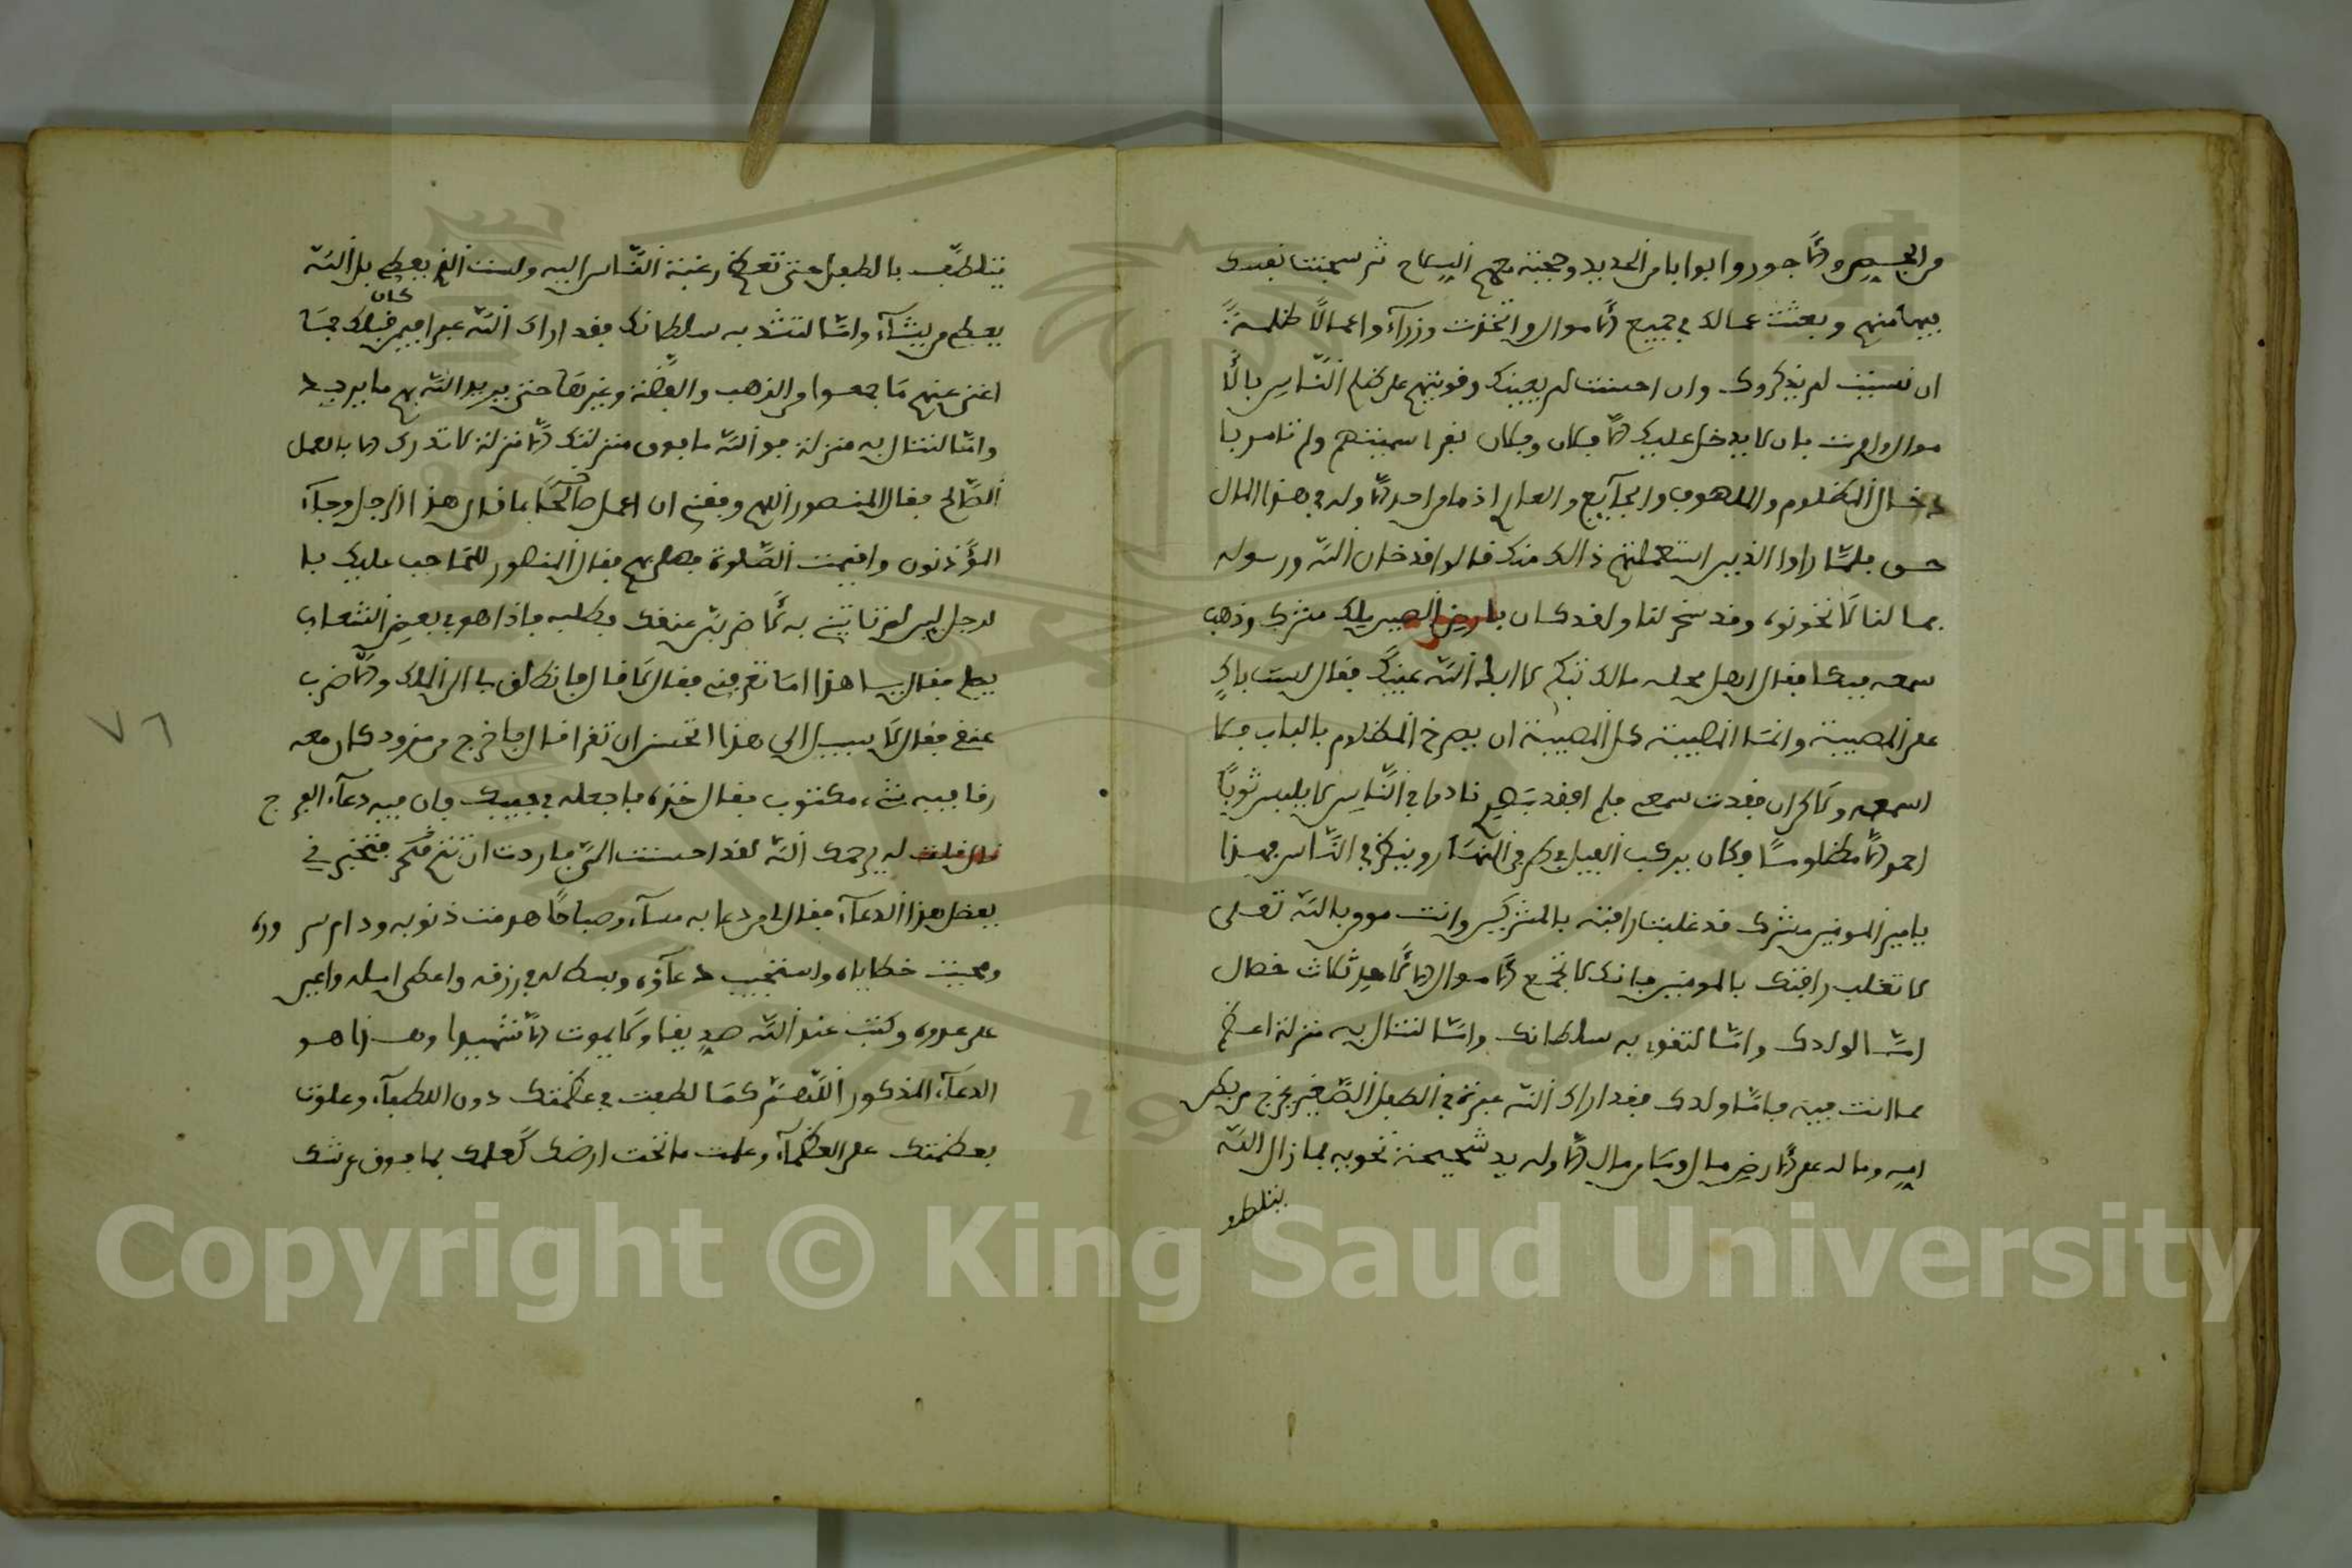 من الجص والآجور وابوابا من الحديد وحجبة معهم السلاح ثم سجنت نفسك
فيها منهم وبعثت عمالك في جميع الأموال واتخذت وزراء واعمالا ظلمة
ان نسيت لم يذكروك وان احسنت لم يعينك وقويتهم على ظلم الناس بالأ
موال وامرت بان لا يدخل عليك الا فلان وفلان نفرا سميتهم ولم تامر با
دخال المظلوم والملهوف والجآيع والعار اذ ما من احد الا وله في هذا المال
حق فلما راوا الذين استعملتهم ذالك منك قالوا قد خان الله ورسوله
بما لنا لا نخونه وقد سخر لنا ولقد كان بارض الصين ملك مشرك وذهب
سمعه فبكا فقال اهل محله مالك تبكي لا ابكى الله عينيك فقال لست باك
على المصيبة وانما المصيبة كل المصيبة ان يصرخ المظلوم بالباب فلا
اسمعه ولاكن ان فقدت سمعي فلم افقد بصري نادوا في الناس لا يلبس ثوبا
احمر الا مظلوما وكان يركب الفيل في طرفي النهار وينظر في الناس فهذا
يامير المومنين مشرك قد غلبت رافته بالمشركين وانت مومن بالله تعلى
لا تغلب رافتك بالمومنين فانك لا تجمع الأموال الا لأحد ثلاث خصال
امّا لولدك وامّا لتقوي به سلطانك وامّا لتنال به منزلة اعظم
مما انت فيه فامّا ولدك فقد اراك الله عبرة في الطفل الصغير يخرج من بطن
امه وما له على الأرض مال وما من مال الا وله يد شحيحة تحويه بما زال الله
يتلطف
يتلطف بالطفل حتى تعظم رغبة الناس اليه ولست الذي يعطي بل الله
يعطي من يشآء وامّا لتشد به سلطانك فقد اراك الله عبرا فيمن كان قبلك فما
اغنى عنهم ما جمعوا من الذهب والفضة وغيرها حتى يريد الله بهم ما يريد
وامّا لتنال به منزلة فو الله ما فوق منزلتك الا منزلة لا تدرك الا بالعمل
الصالح فقال المنصور اللهم وفقني ان اعمل صالحا بما قال هذا الرجل وجآء
المؤذنون واقيمت الصلوة فصلى بهم فقال المنصور للحاجب عليك با
لرجل لين لم تاتيني به لأضربن عنقك فطلبه فاذا هو في بعض الشعاب
يصلي فقال يا هذا اما تعرفني فقال لا قال فانطلق بنا الى الملك والا ضرب
عنقي فقال لا سبيل الى هذا اتحسن ان تقرا قال لا فاخرج من مزود كان معه
رقا فيه شيء مكتوب فقال خذه فاجعله في جيبك فان فيه دعآء الفرج
قال قلت له يرحمك الله لقد احسنت اليّ فاردت ان تتم فكر فتخبرني
بفضل هذا الدعآء فقال لي من دعا به مسآء وصباحا هدمت ذنوبه ودام سروره
ومحيت خطاياه واستجيب دعآؤه وبسط له في رزقه واعطى امله واعين
على عدوه وكتب عند الله صديقا ولا يموت الا شهيدا وهذا هو
الدعآء المذكور اللهم كما لطفت في عظمتك دون اللطفآء وعلوت
بعظمتك على العظمآء وعلمت ما تحت ارضك كعلمك بما فوق عرشك
٧٦
Copyright © King Saud University